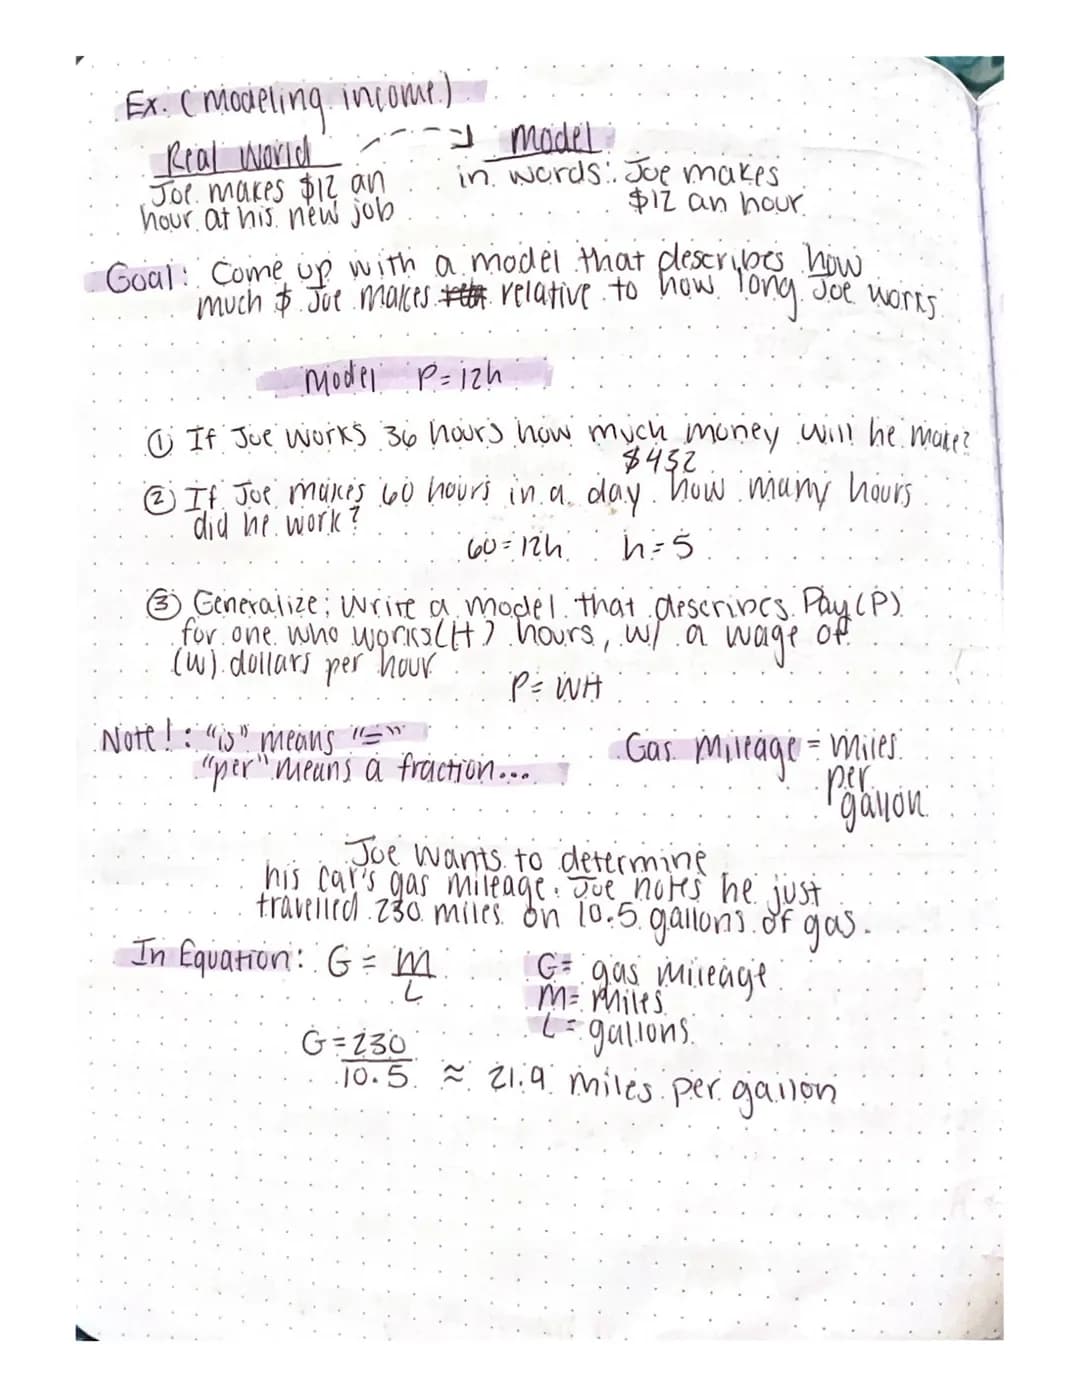 Ex. (modeling income.)
Real World
Joe makes $12 an
hour at his new job
model
in words: Joe makes
$12 an hour
Goal: Come up with a model that describes how
much $ Joe makes relative to how long Joe works
Model P=12h
① If Joe works 36 hours how much money will he make?
$432
② If Joe makes 60 hours in a day how many hours
did he work?
60=12h h=5
③ Generalize; write a model that describes Pay (P)
for one who works (H) hours, w/ a wage of
(w) dollars per hour
P=WH
Note!: "is" means "="
"per" means a fraction...
Gas Mileage = miles
per
gallon
Joe wants to determine
his car's gas mileage. Joe notes he just
travelled 230 miles on 10.5 gallons of gas.
In Equation: G = m
L
G= gas mileage
m= miles
L= gallons
G=230
10.5 ≈ 21.9 miles per gallon